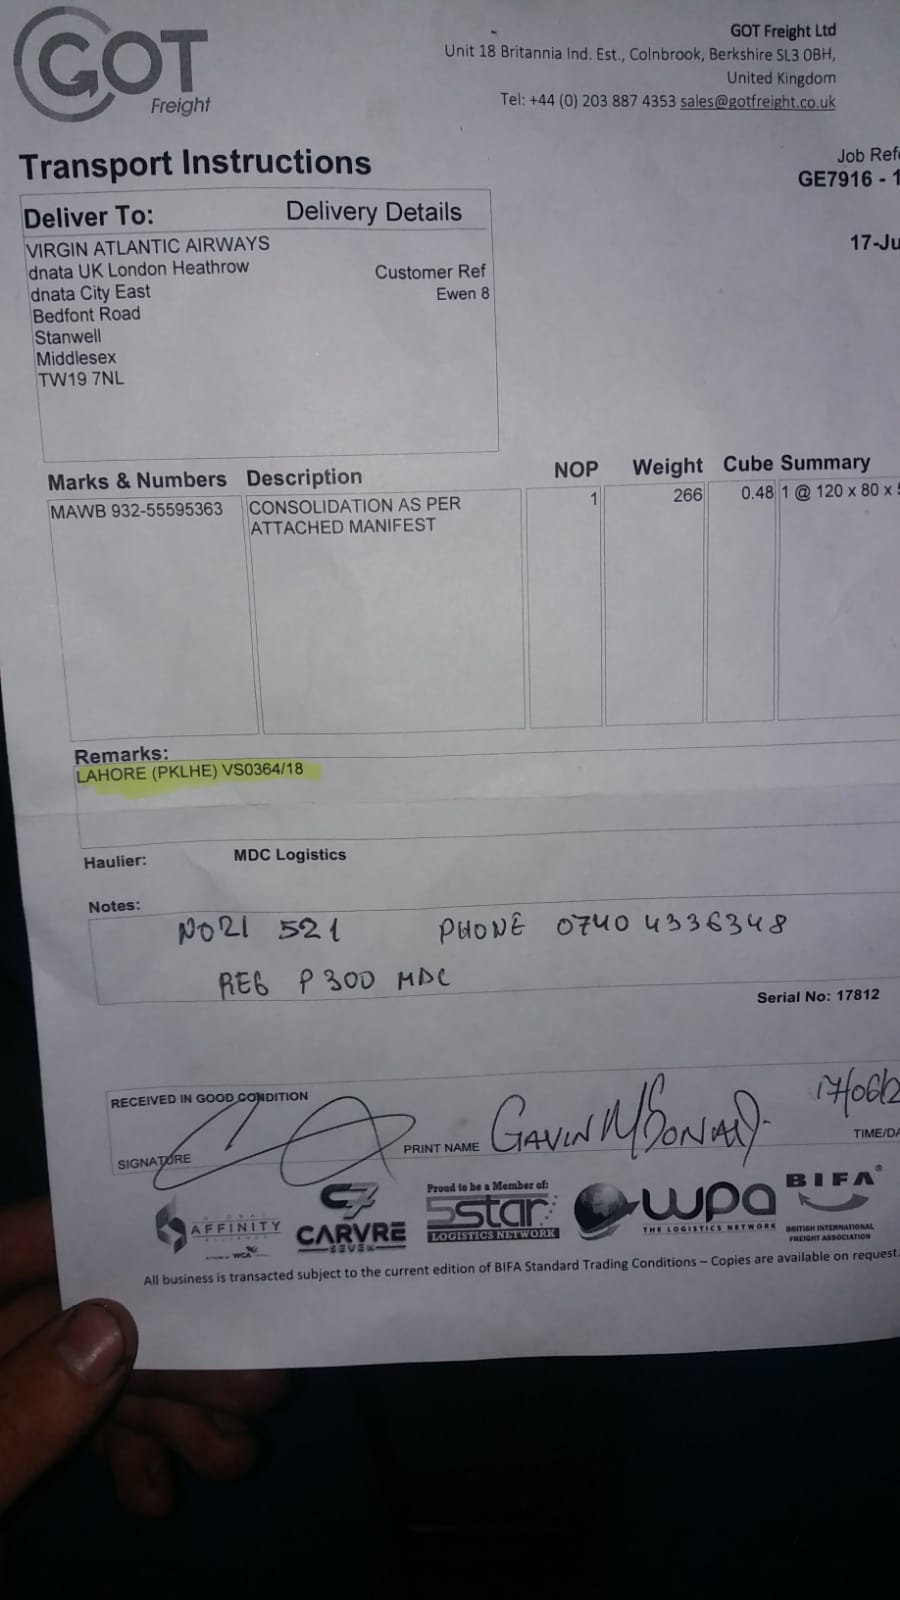 GOT
Freight
GOT Freight Ltd
Unit 18 Britannia Ind. Est., Colnbrook, Berkshire SL3 0BH,
United Kingdom
Tel: +44 (0) 203 887 4353 sales@gotfreight.co.uk
Transport Instructions
Job Refe
GE7916 - 1
17-Ju
Deliver To: Delivery Details
VIRGIN ATLANTIC AIRWAYS
dnata UK London Heathrow Customer Ref
dnata City East Ewen 8
Bedfont Road
Stanwell
Middlesex
TW19 7NL
Marks & Numbers Description NOP Weight Cube Summary
MAWB 932-55595363 CONSOLIDATION AS PER 1 266 0.48 1 @ 120 x 80 x 5
ATTACHED MANIFEST
Remarks:
LAHORE (PKLHE) VS0364/18
Haulier: MDC Logistics
Notes:
NO21 521 PHONE 0740 4336348
REG P300 MDC
Serial No: 17812
RECEIVED IN GOOD CONDITION
SIGNATURE PRINT NAME GAVIN 17/06/2 TIME/DA
GLOBAL AFFINITY ALLIANCE
WCA
C7
CARVRE
SEVEN
Proud to be a Member of:
5star
LOGISTICS NETWORK
wpa
THE LOGISTICS NETWORK
BIFA®
BRITISH INTERNATIONAL
FREIGHT ASSOCIATION
All business is transacted subject to the current edition of BIFA Standard Trading Conditions – Copies are available on request.